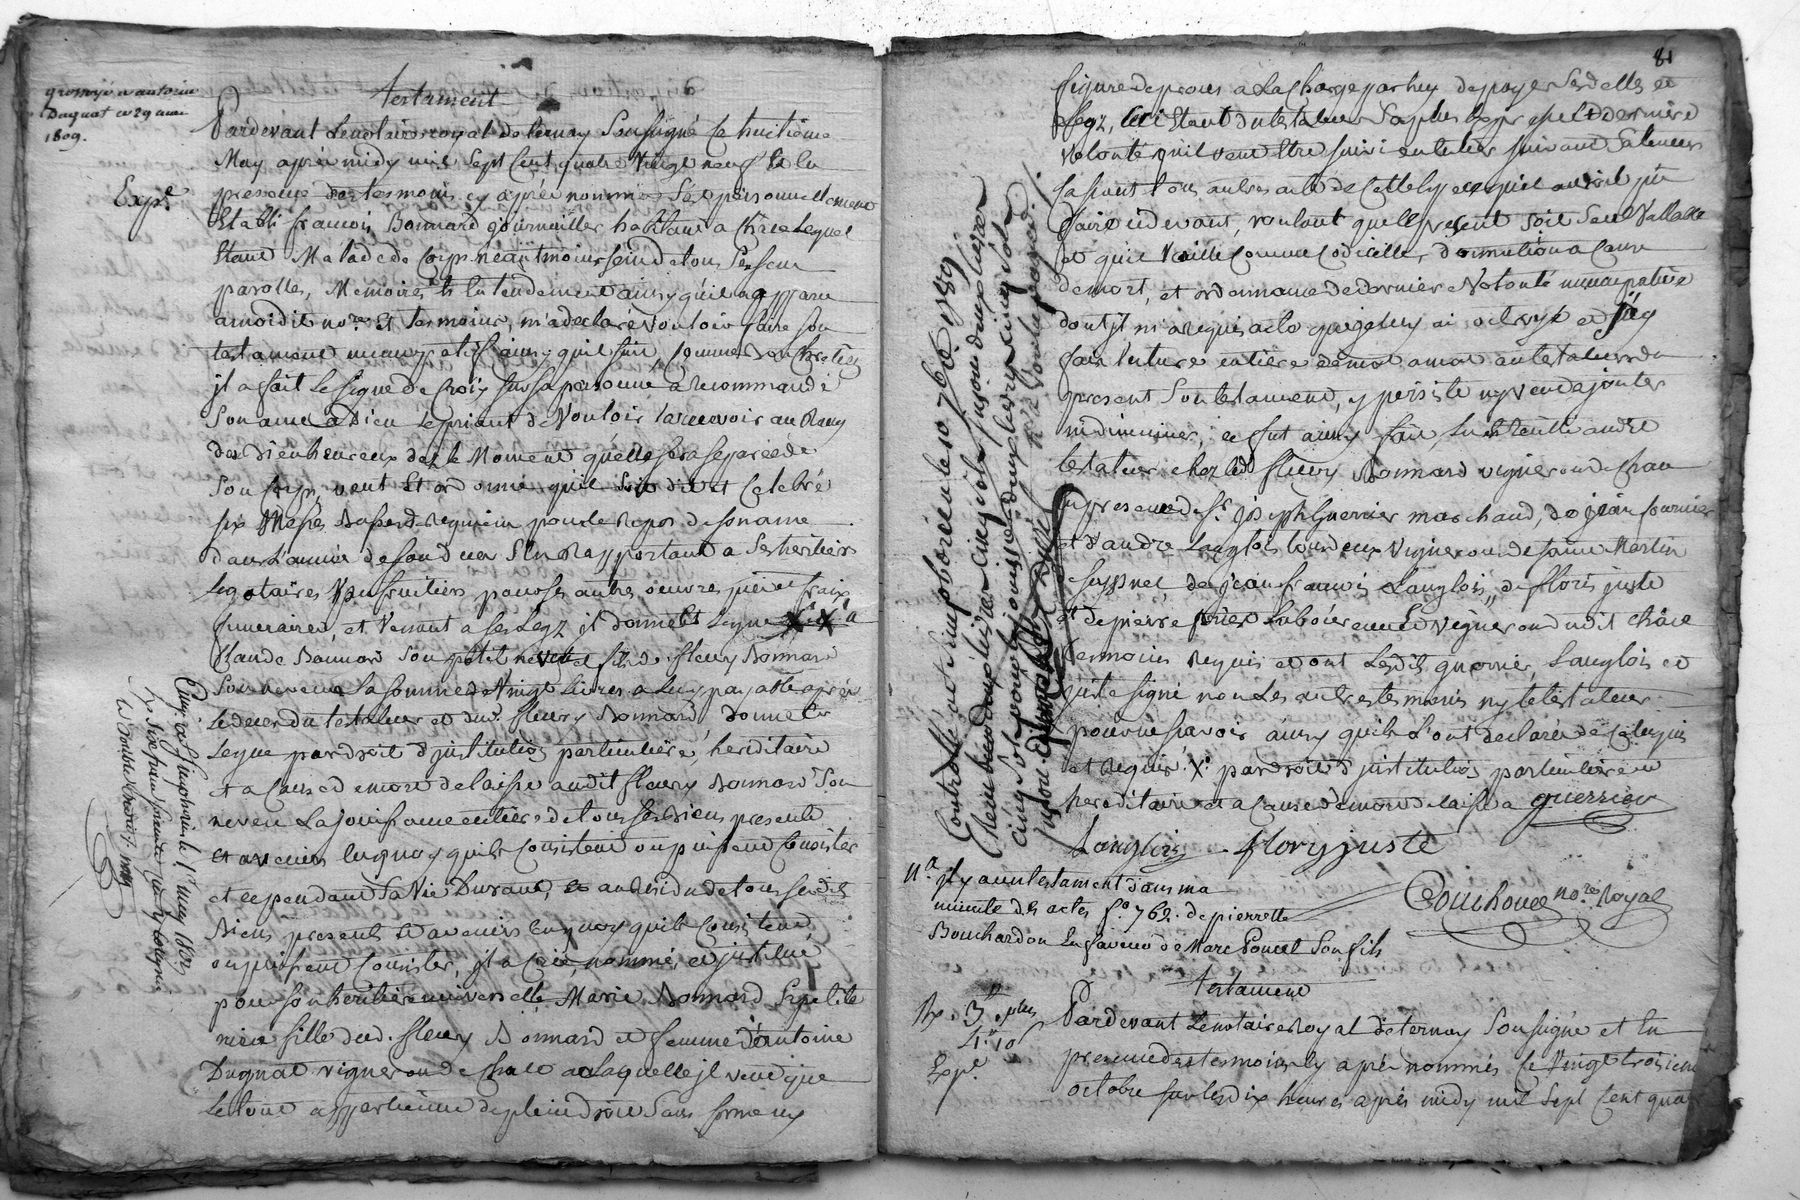 grossoyé a antoine
Dugnat ce 29 mai
1809.
testament
Pardevant Le notaire royal de ternay Soussigné Ce huitieme
May après midy mil Sept Cent quatre Vingt neuf Et en
presence des tesmoins cy après nommés S'est personnellement
Etabli francois Bonnard journaillier habitant a Chace Lequel
Etant Malade de Corps neantmoins sein de tous Ses sens
parolles, Memoires Et Entendement ainsy qu'il a apparu
a moidit nore. Et tesmoins, m'a declaré Vouloir faire Son
testament nuncupatif ainsy quil suit, Comme bon Chretien
jl a fait Le signe de Croix sur sa personne, a recommandé
Son ame a Dieu Le priant de Vouloir La recevoir au Rang
des Bienheureux dez le Moment quelle sera separée de
Son Corps, veut Et ordonne quil soit dit et Celebré
six Messes Basses de Requiem pour le Repos de son ame
dans L'année de son deces S'en Rapportant a Ses heritiers
Legataires Usufruitiers pour ses autres oeuvres pies et fraix
funeraires, et Venant a ses Legz jl donne Et Legue X a
Claude Bonnard Son petit neveu fils de fleury Bonnard
Son neveu La somme de Vingt Livres a Luy payable après
Le deces du testateur et dud. fleury Bonnard, donne Et
Legue par droit d'jnstitution particuliere, hereditaire
et a Cause de mort delaisse audit fleury Bonnard Son
neveu La jouissance entiere de tous Ses Biens presents
Et avenirs En quoy quils Consistent ou puissent Consister
et ce pendant Sa Vie Durant, Et au Residu de tous Sesdits
Biens presents Et avenirs En quoy quils Consistent
ou puissent Consister, jl a Créé, nommé, et jnstitué
pour son heritiere universelle Marie Bonnard Sa petite
niece fille dud. fleury Bonnard et femme d'antoine
Dugnat vigneron de Chace a Laquelle jl veut que
Le tout appartienne de plein droit Sans forme ny
Expé.
81
figure de proces a La Charge par luy de payer Sesdettes et
Legz, Ceci Etant du testateur Sa plus Expresse Et derniere
Volonté quil veut Etre suivie en entier suivant Sa teneur
Cassant tous autres actes de Cette Espece quil auroit pû
faire cidevant, voulant que Le present soit Seul Vallable
et quil Vaille Comme Codicille, donnation a Cause
de mort, et ordonnance de derniere Volonté nuncupative
dont jl m'a requis acte que je luy ai octroyé et
fait lecture entiere de mot a mot au testateur du
present Son testament, y persiste ny veut ajouter
ni diminuer, ce fut ainsy fait, Lu Et Recité audit
testateur chez led fleury Bonnard vigneron de Chace
En presence de Sr. joseph Guerrier marchand, de jean fournier
et d'andré Langlois tous deux Vignerons de saint Martin
de jean francois Langlois, de floris juste
et de pierre Vigneron dudit Chace
tesmoins Requis et ont Lesdits guerrier, Langlois et
juste signé non Les autres tesmoins ny Le testateur
pour ne savoir ainsy quils L'ont declaré de Ce Enquis
et Requis. X. par droit d'jnstitution particuliere
hereditaire et a Cause de mort delaisse a guerrier
Langlois flory juste
Couchoud nore. Royal
Na. jl y a un testament dans ma
minute des actes fo. 762. de pierrette
Bouchardon En faveur de Marc Poncet Son fils
testament
Expé
Pardevant Le notaire Royal de ternay Soussigné et En
presence des tesmoins Cy après nommés Ce Vingt troisieme
octobre sur les dix heures après midy mil Sept Cent quat